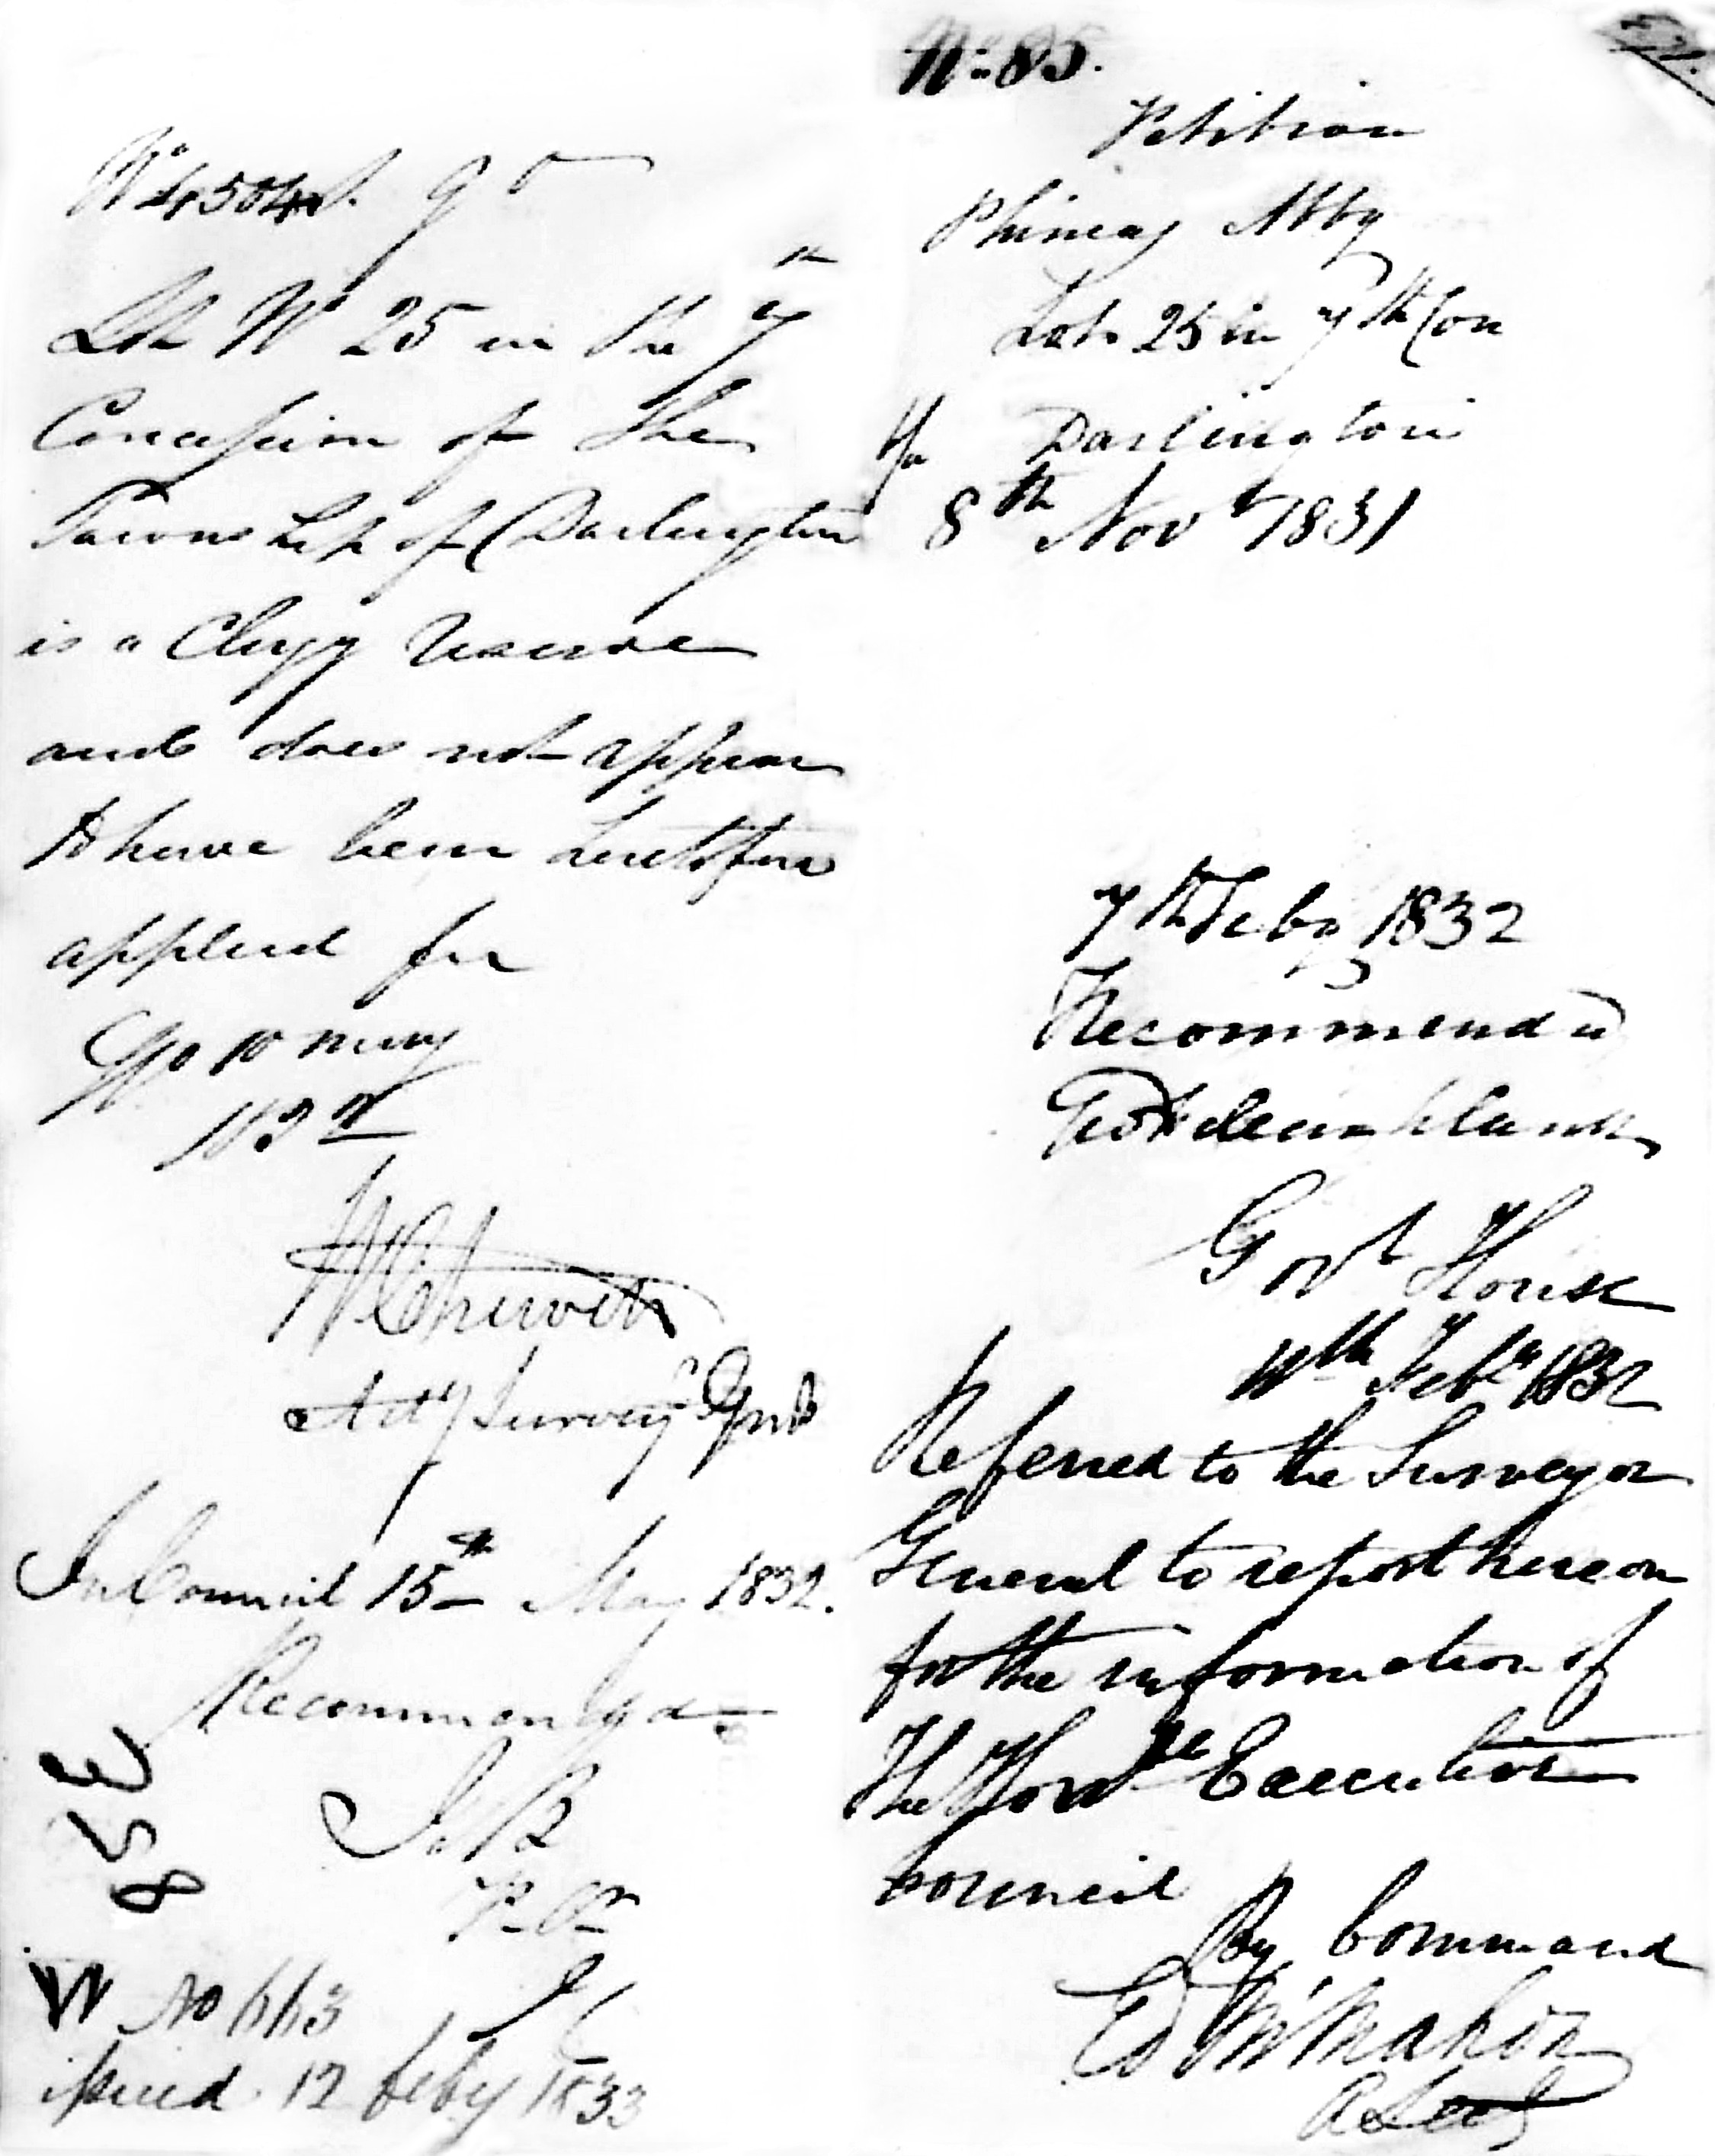 No 4504.
Lot No 25 in the 7th
Concession of the
Township of Darlington
is a Clergy Reserve
and does not appear
to have been heretofore
applied for
10 May
1832
W Chewett
Actg Surveyr Genl
In Council 15th May 1832.
Recommended
P.C.
358
W No 663
issued 12 feby 1833
No: 85.
Petition
Phineas Abby
Lot 25 in 7th Con
Darlington
8th Novr 1831
7th Feby 1832
Recommended
Govt House
Feby 1832
Referred to the Surveyor
General to report hereon
for the information of
The Honble Executive
Council
By Command
Ed McMahon